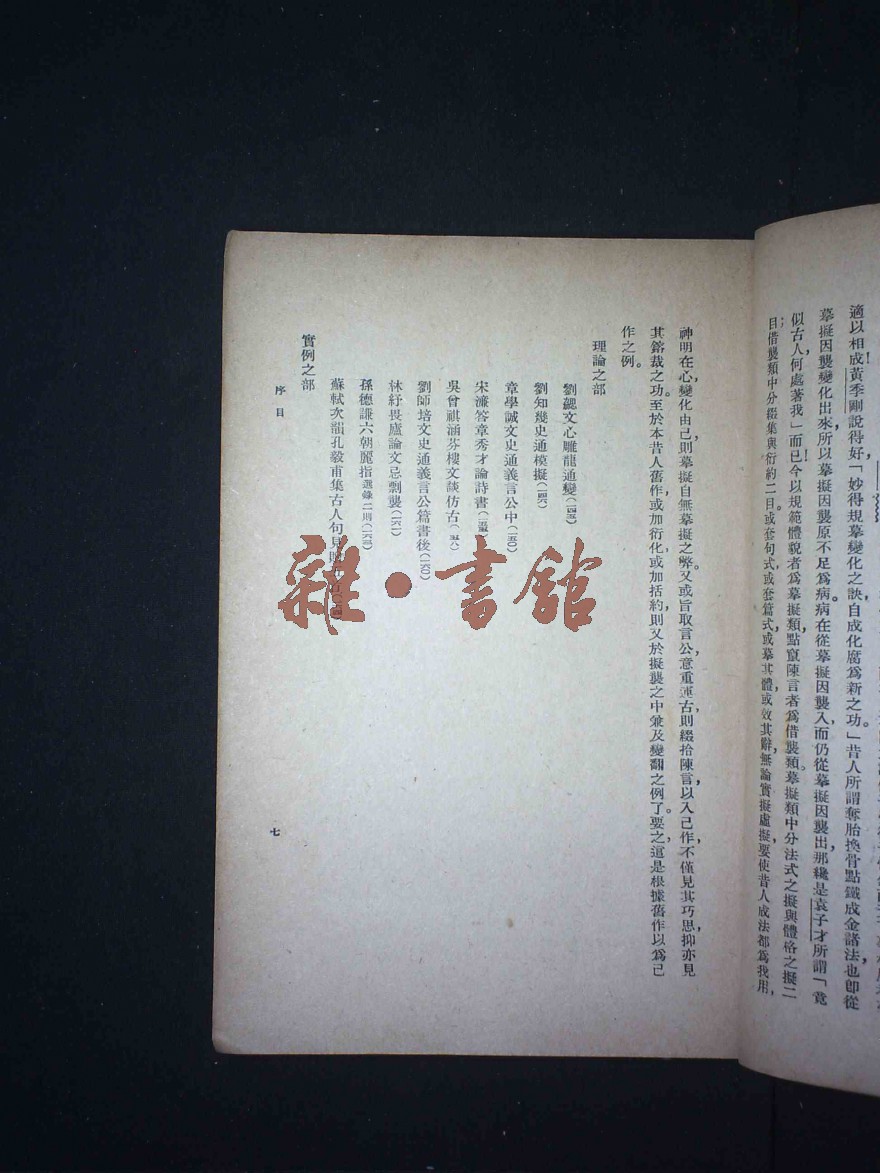 適以相成黃季剛說得好「妙得規摹變化之訣自成化腐爲新之功。」昔人所謂奪胎換骨點鐵成金諸法也卽從
摹擬因襲變化出來，所以摹擬因襲原不足爲病。病在從摹擬因襲入，而仍從摹擬因襲出那纔是袁子才所謂「竟
似古人，何處著我」而已今以規範體貌者爲摹擬類，點竄陳言者爲借襲類。摹擬類中分法式之擬與體格之擬二
目借襲類中分綴集與衍約二目。或套句式，或套篇式，或摹其體，或效其辭，無論實擬虛擬，要使昔人成法都爲我用，
神明在心，變化由己，則摹擬自無摹擬之弊。又或旨取言公，意重運古，則綴拾陳言以入己作，不僅見其巧思，抑亦見
其鎔裁之功。至於本昔人舊作，或加衍化，或加括約，則又於擬襲之中兼及變翻之例了。要之，這是根據舊作以爲己
作之例。
理論之部
劉勰文心雕龍通變
劉知幾史通模擬
章學誠文史通義言公中（一五〇）
宋濂答章秀才論詩書
吳曾祺涵芬樓文談仿古
劉師培文史通義言公篇書後（一六〇）
林紓畏廬論文忌剽襲
孫德謙六朝麗指選錄二則
蘇軾次韻孔毅甫集古人句見
實例之部
序目
七
雜·書館